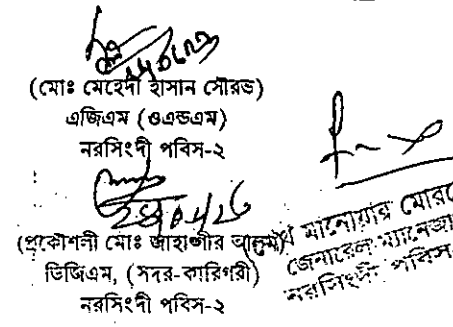 (মোঃ মেহেদী হাসান সৌরভ)
এজিএম (ওএন্ডএম)
নরসিংদী পবিস-২
(প্রকৌশলী মোঃ জাহাঙ্গীর আলম)
ডিজিএম, (সদর-কারিগরী)
নরসিংদী পবিস-২
মানোয়ার মোর
জেনারেল ম্যানেজা
নরসিংদী পবিস-